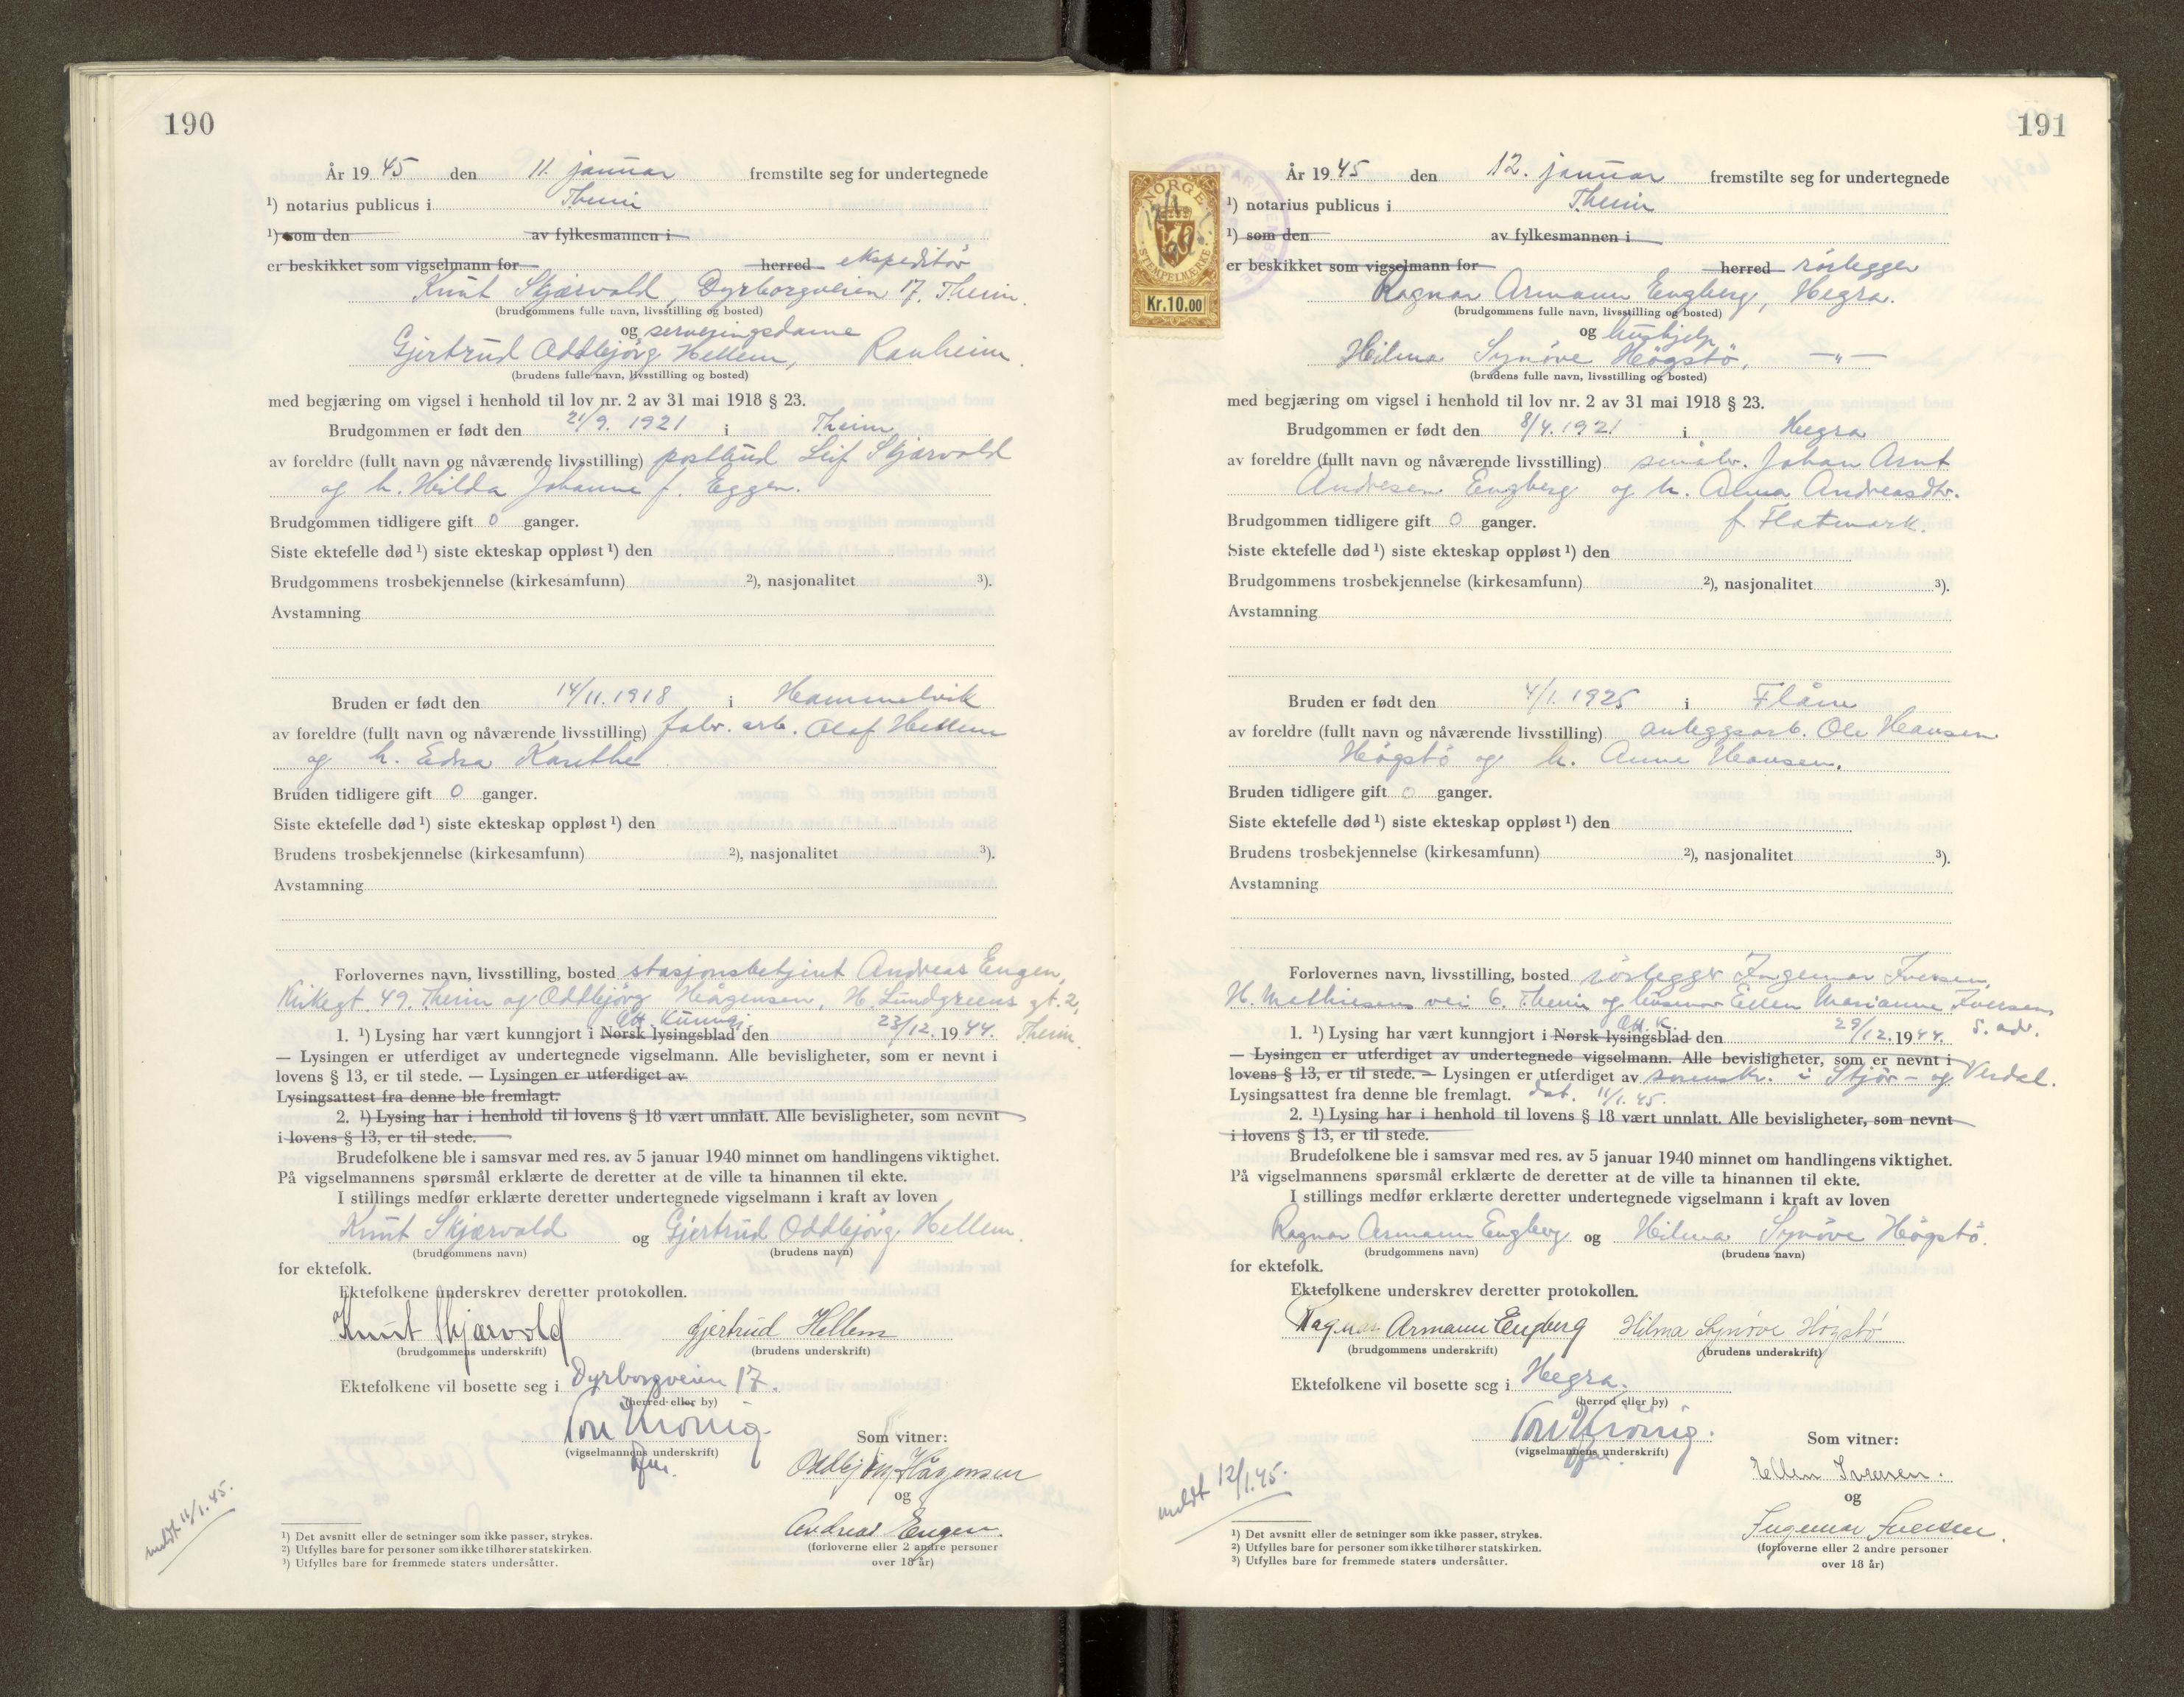 190
År 19 45 den 11. januar fremstilte seg for undertegnede
¹) notarius publicus i Theim
¹) som den av fylkesmannen i
er beskikket som vigselmann for herred ekspeditör
Knut Skjærvold, Dyrborgveien 17, Theim.
(brudgommens fulle navn, livsstilling og bosted)
og serveringsdame
Gjertrud Oddbjörg Hellem, Ranheim.
(brudens fulle navn, livsstilling og bosted)
med begjæring om vigsel i henhold til lov nr. 2 av 31 mai 1918 § 23.
Brudgommen er født den 21/9. 1921 i Theim
av foreldre (fullt navn og nåværende livsstilling) postbud Leif Skjærvold
og h. Hilda Johanne f. Eggen.
Brudgommen tidligere gift 0 ganger.
Siste ektefelle død ¹) siste ekteskap oppløst ¹) den
Brudgommens trosbekjennelse (kirkesamfunn) ²), nasjonalitet ³).
Avstamning
Bruden er født den 14/11. 1918 i Hammelvik
av foreldre (fullt navn og nåværende livsstilling) fabr. arb. Olaf Hellem
og h. Edna Karethe
Bruden tidligere gift 0 ganger.
Siste ektefelle død ¹) siste ekteskap oppløst ¹) den
Brudens trosbekjennelse (kirkesamfunn) ²), nasjonalitet ³).
Avstamning
Forlovernes navn, livsstilling, bosted stasjonsbetjent Andreas Engen,
Kirkegt. 49. Theim og Oddbjörg Hågensen, H. Lundgreens gt. 2,
Off. Kunngj.
1. ¹) Lysing har vært kunngjort i Norsk lysingsblad den 23/12. 1944. Theim.
— Lysingen er utferdiget av undertegnede vigselmann. Alle bevisligheter, som er nevnt i
lovens § 13, er til stede. — Lysingen er utferdiget av
Lysingsattest fra denne ble fremlagt.
2. ¹) Lysing har i henhold til lovens § 18 vært unnlatt. Alle bevisligheter, som nevnt
i lovens § 13, er til stede.
Brudefolkene ble i samsvar med res. av 5 januar 1940 minnet om handlingens viktighet.
På vigselmannens spørsmål erklærte de deretter at de ville ta hinannen til ekte.
I stillings medfør erklærte deretter undertegnede vigselmann i kraft av loven
Knut Skjærvold og Gjertrud Oddbjörg Hellem.
(brudgommens navn) (brudens navn)
for ektefolk.
Ektefolkene underskrev deretter protokollen.
Knut Skjærvold Gjertrud Hellem
(brudgommens underskrift) (brudens underskrift)
Ektefolkene vil bosette seg i Dyrborgveien 17.
(herred eller by)
(vigselmannens underskrift)
Som vitner:
Oddbjörg Hågensen
og
Andreas Engen.
(forloverne eller 2 andre personer
over 18 år)
meldt 11/1. 45.
¹) Det avsnitt eller de setninger som ikke passer, strykes.
²) Utfylles bare for personer som ikke tilhører statskirken.
³) Utfylles bare for fremmede staters undersåtter.
191
NORGE
STEMPELMERKE
Kr.10.00
År 19 45 den 12. januar fremstilte seg for undertegnede
¹) notarius publicus i Theim
¹) som den av fylkesmannen i
er beskikket som vigselmann for herred rörlegger
Ragnar Armann Engberg, Hegra.
(brudgommens fulle navn, livsstilling og bosted)
og hushjelp
Hilma Synöve Högstö, —"—
(brudens fulle navn, livsstilling og bosted)
med begjæring om vigsel i henhold til lov nr. 2 av 31 mai 1918 § 23.
Brudgommen er født den 8/4. 1921 i Hegra
av foreldre (fullt navn og nåværende livsstilling) småbr. Johan Arnt
Andresen Engberg og h. Alma Andreasdtr.
Brudgommen tidligere gift 0 ganger. f. Flatmark.
Siste ektefelle død ¹) siste ekteskap oppløst ¹) den
Brudgommens trosbekjennelse (kirkesamfunn) ²), nasjonalitet ³).
Avstamning
Bruden er født den 4/1. 1925 i Flåm
av foreldre (fullt navn og nåværende livsstilling) anleggsarb. Ole Hansen
Högstö og h. Anne Hansen.
Bruden tidligere gift 0 ganger.
Siste ektefelle død ¹) siste ekteskap oppløst ¹) den
Brudens trosbekjennelse (kirkesamfunn) ²), nasjonalitet ³).
Avstamning
Forlovernes navn, livsstilling, bosted rörlegger Ingemar Iversen,
H. Mathiesens vei 6. Theim og husmor Ellen Marianne Iversen,
Off. K. s. adr.
1. ¹) Lysing har vært kunngjort i Norsk lysingsblad den 29/12. 1944.
— Lysingen er utferdiget av undertegnede vigselmann. Alle bevisligheter, som er nevnt i
lovens § 13, er til stede. — Lysingen er utferdiget av sorenskr. i Stjör- og Verdal.
Lysingsattest fra denne ble fremlagt. dat. 11/1. 45.
2. ¹) Lysing har i henhold til lovens § 18 vært unnlatt. Alle bevisligheter, som nevnt
i lovens § 13, er til stede.
Brudefolkene ble i samsvar med res. av 5 januar 1940 minnet om handlingens viktighet.
På vigselmannens spørsmål erklærte de deretter at de ville ta hinannen til ekte.
I stillings medfør erklærte deretter undertegnede vigselmann i kraft av loven
Ragnar Armann Engberg og Hilma Synöve Högstö.
(brudgommens navn) (brudens navn)
for ektefolk.
Ektefolkene underskrev deretter protokollen.
Ragnar Armann Engberg Hilma Synöve Högstö
(brudgommens underskrift) (brudens underskrift)
Ektefolkene vil bosette seg i Hegra.
(herred eller by)
(vigselmannens underskrift)
Som vitner:
Ellen Iversen.
og
Ingemar Iversen.
(forloverne eller 2 andre personer
over 18 år)
meldt 12/1. 45.
¹) Det avsnitt eller de setninger som ikke passer, strykes.
²) Utfylles bare for personer som ikke tilhører statskirken.
³) Utfylles bare for fremmede staters undersåtter.